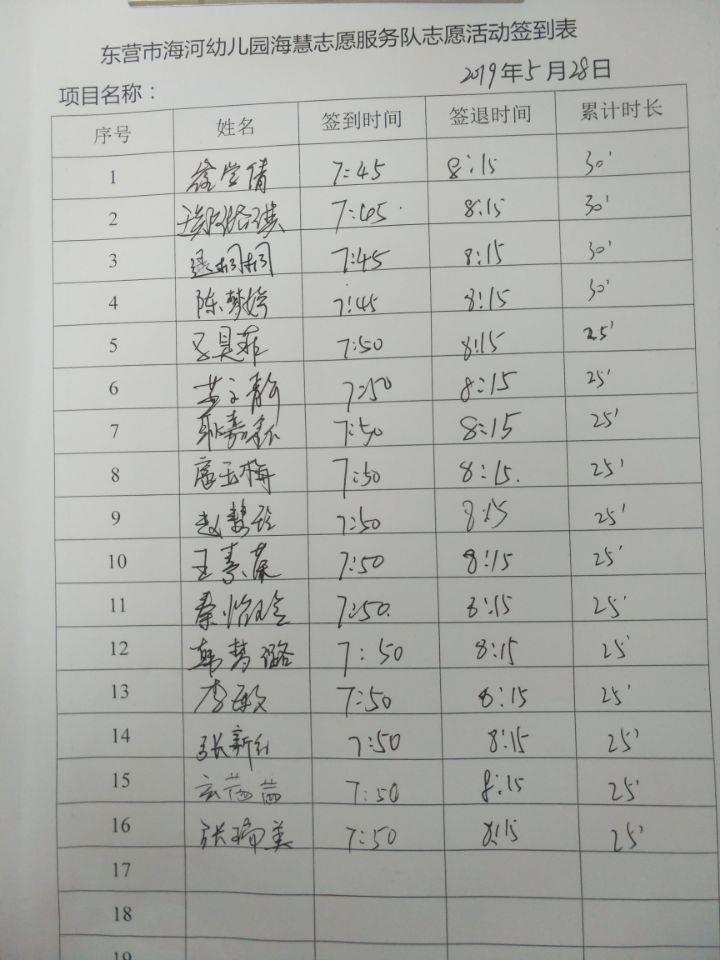 东营市海河幼儿园海慧志愿服务队志愿活动签到表
项目名称： 2019年5月28日
序号 姓名 签到时间 签退时间 累计时长
1 徐学倩 7:45 8:15 30'
2 7:45 8:15 30'
3 7:45 8:15 30'
4 陈梦婷 7:45 8:15 30'
5 7:50 8:15 25'
6 7:50 8:15 25'
7 7:50 8:15 25'
8 唐玉梅 7:50 8:15 25'
9 赵慧玲 7:50 8:15 25'
10 王素蕖 7:50 8:15 25'
11 秦怡玲 7:50 8:15 25'
12 韩梦璐 7:50 8:15 25'
13 李敏 7:50 8:15 25'
14 张新红 7:50 8:15 25'
15 7:50 8:15 25'
16 张瑞美 7:50 8:15 25'
17
18
19